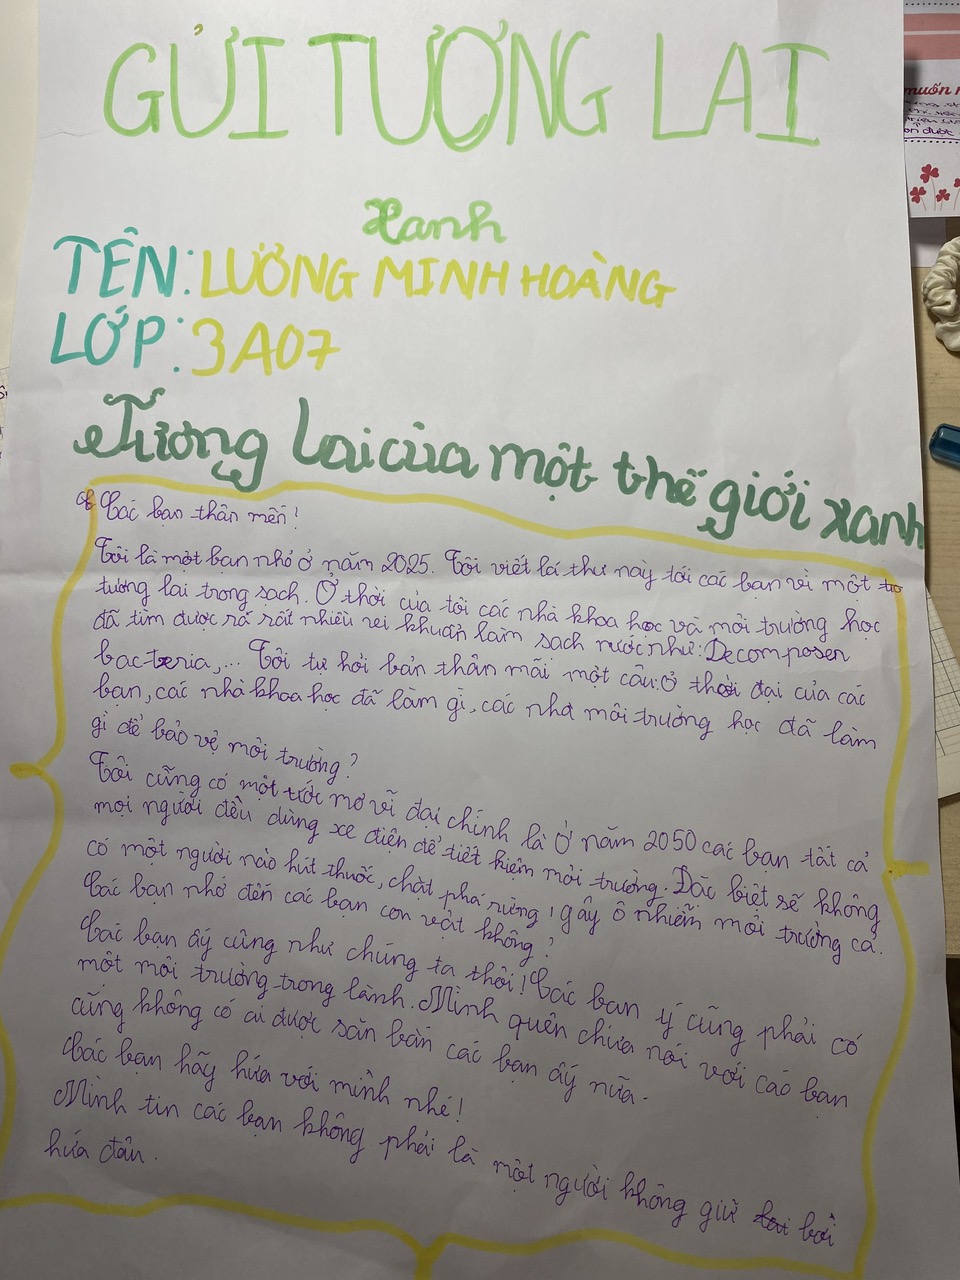 GỬI TƯƠNG LAI
xanh
TÊN: LƯƠNG MINH HOÀNG
LỚP: 3A07
Tương lai của một thế giới xanh
Các bạn thân mến!
Tôi là một bạn nhỏ ở năm 2025. Tôi viết lá thư này tới các bạn vì một
tương lai trong sạch. Ở thời của tôi các nhà khoa học và môi trường học
đã tìm được rất nhiều khuẩn làm sạch nước như: Decomposer
bacteria,... Tôi tự hỏi bản thân mãi một câu: Ở thời đại của các
bạn, các nhà khoa học đã làm gì, các nhà môi trường học đã làm
gì để bảo vệ môi trường?
Tôi cũng có một ước mơ vĩ đại chính là Ở năm 2050 các bạn tất cả
mọi người đều dùng xe điện để tiết kiệm môi trường. Đặc biệt sẽ không
có một người nào hút thuốc, chặt phá rừng, gây ô nhiễm môi trường cả.
Các bạn nhớ đến các bạn con vật không?
Các bạn ấy cũng như chúng ta thôi! Các bạn ý cũng phải có
một môi trường trong lành. Mình quên chưa nói với các bạn
cũng không có ai được săn bắn các bạn ấy nữa.
Các bạn hãy hứa với mình nhé!
Mình tin các bạn không phải là một người không giữ lời
hứa đâu.
muốn